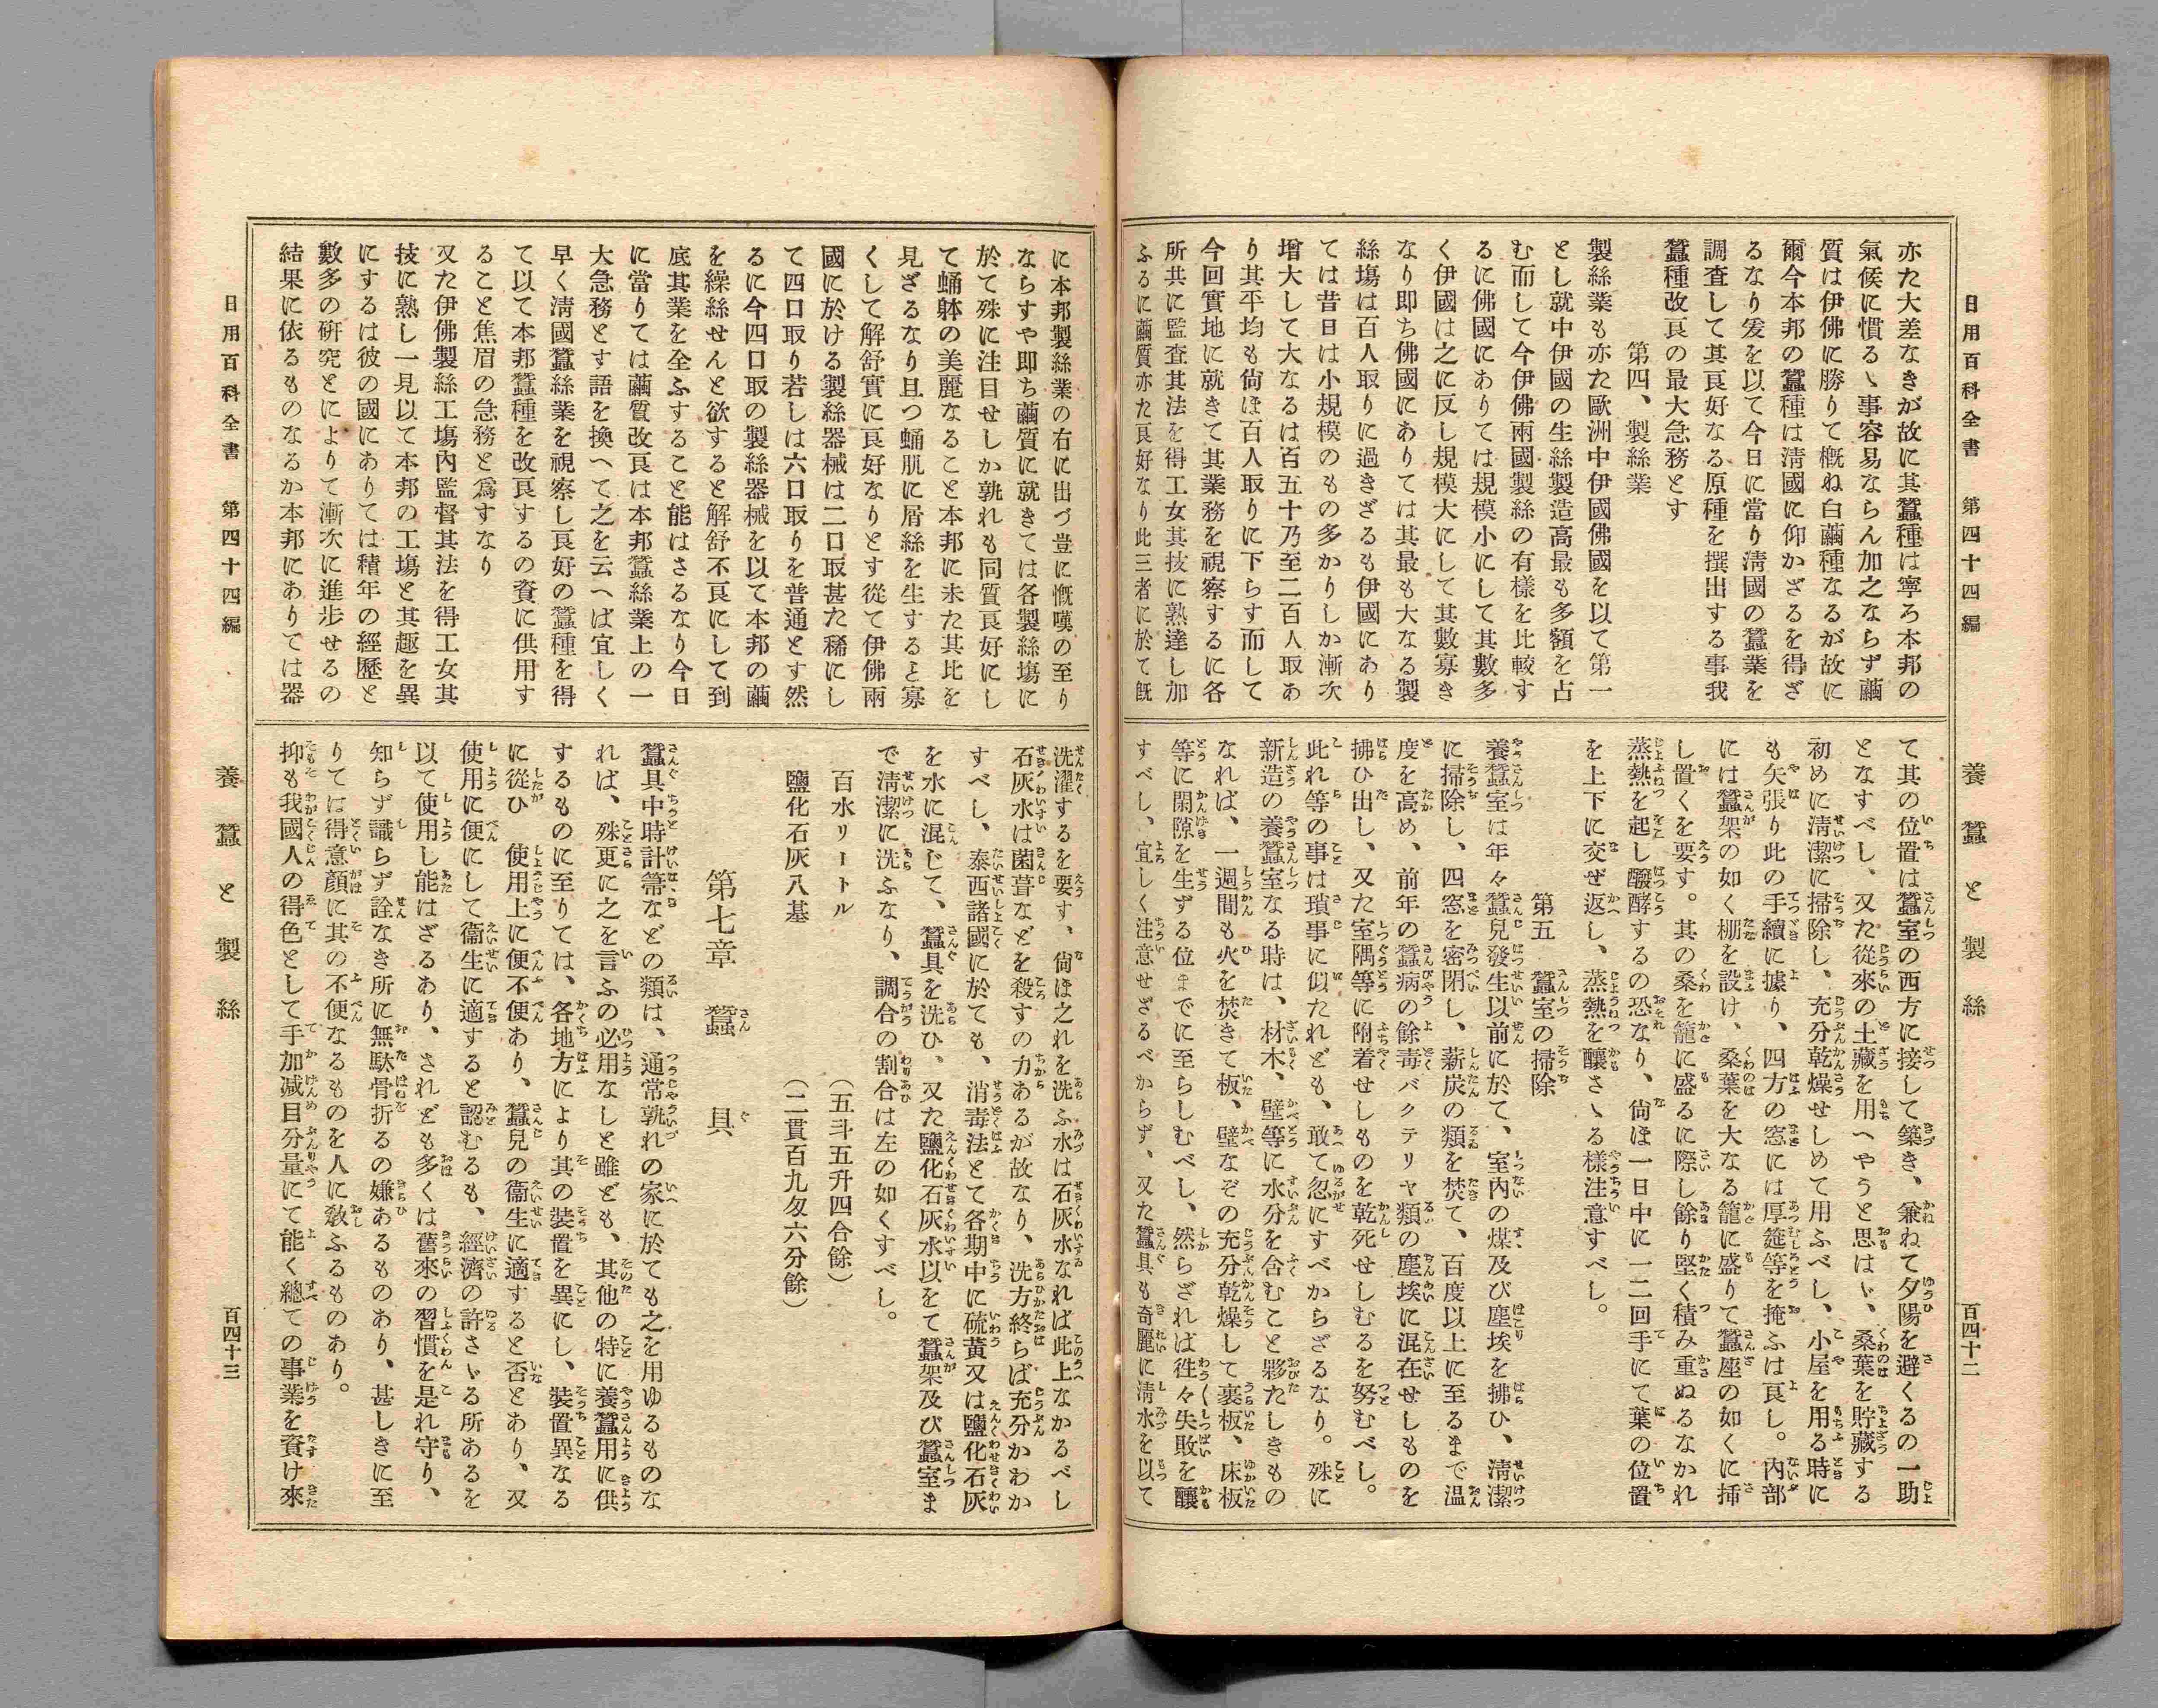 日用百科全書 第四十四編
養蠶と製絲
百四十二
亦た大差なきが故に其蠶種は寧ろ本邦の
氣候に慣るゝ事容易ならん加之ならず繭
質は伊佛に勝りて槪ね白繭種なるが故に
爾今本邦の蠶種は淸國に仰かざるを得ざ
るなり爰を以て今日に當り淸國の蠶業を
調査して其良好なる原種を撰出する事我
蠶種改良の最大急務とす
第四、製絲業
製絲業も亦た歐洲中伊國佛國を以て第一
とし就中伊國の生絲製造高最も多額を占
む而して今伊佛兩國製絲の有樣を比較す
るに佛國にありては規模小にして其數多
く伊國は之に反し規模大にして其數寡き
なり卽ち佛國にありては其最も大なる製
絲塲は百人取りに過きざるも伊國にあり
ては昔日は小規模のもの多かりしか漸次
增大して大なるは百五十乃至二百人取あ
り其平均も尙ほ百人取りに下らす而して
今回實地に就きて其業務を視察するに各
所共に監査其法を得工女其技に熟達し加
ふるに繭質亦た良好なり此三者に於て旣
て其の位置は蠶室の西方に接して築き、兼ねて夕陽を避くるの一助
となすべし、又た從來の土藏を用へやうと思はゞ、桑葉を貯藏する
初めに淸潔に掃除し、充分乾燥せしめて用ふべし、小屋を用る時に
も矢張り此の手續に據り、四方の窓には厚筵等を掩ふは良し。內部
には蠶架の如く棚を設け、桑葉を大なる籠に盛りて蠶座の如くに揷
し置くを要す。其の桑を籠に盛るに際し餘り堅く積み重ぬるなかれ
蒸熱を起し醱酵するの恐なり、尙ほ一日中に一二回手にて葉の位置
を上下に交ぜ返し、蒸熱を釀さゝる樣注意すべし。
第五 蠶室の掃除
養蠶室は年々蠶兒發生以前に於て、室內の煤及び塵埃を拂ひ、淸潔
に掃除し、四窓を密閉し、薪炭の類を焚て、百度以上に至るまで温
度を高め、前年の蠶病の餘毒バクテリヤ類の塵埃に混在せしものを
拂ひ出し、又た室隅等に附着せしものを乾死せしむるを努むべし。
此れ等の事は瑣事に似たれども、敢て忽にすべからざるなり。殊に
新造の養蠶室なる時は、材木、壁等に水分を含むこと夥たしきもの
なれば、一週間も火を焚きて板、壁なぞの充分乾燥して裏板、床板
等に閑隙を生ずる位までに至らしむべし、然らざれば徃々失敗を釀
すべし、宜しく注意せざるべからず、又た蠶具も奇麗に淸水を以て
に本邦製絲業の右に出づ豈に慨嘆の至り
ならすや卽ち繭質に就きては各製絲塲に
於て殊に注目せしか孰れも同質良好にし
て蛹躰の美麗なること本邦に未た其比を
見ざるなり且つ蛹肌に屑絲を生するヿ寡
くして解舒實に良好なりとす從て伊佛兩
國に於ける製絲器械は二口取甚た稀にし
て四口取り若しは六口取りを普通とす然
るに今四口取の製絲器械を以て本邦の繭
を繰絲せんと欲すると解舒不良にして到
底其業を全ふすること能はさるなり今日
に當りては繭質改良は本邦蠶絲業上の一
大急務とす語を換へて之を云へば宜しく
早く淸國蠶絲業を視察し良好の蠶種を得
て以て本邦蠶種を改良するの資に供用す
ること焦眉の急務と爲すなり
又た伊佛製絲工塲內監督其法を得工女其
技に熟し一見以て本邦の工塲と其趣を異
にするは彼の國にありては積年の經歷と
數多の硏究とによりて漸次に進步せるの
結果に依るものなるか本邦にありては器
洗濯するを要す、尙ほ之れを洗ふ水は石灰水なれば此上なかるべし
石灰水は菌蕈などを殺すの力あるが故なり、洗方終らば充分かわか
すべし、泰西諸國に於ても、消毒法とて各期中に硫黃又は鹽化石灰
を水に混じて、蠶具を洗ひ。又た鹽化石灰水以をて蠶架及び蠶室ま
で淸潔に洗ふなり、調合の割合は左の如くすべし。
百水リートル (五斗五升四合餘)
鹽化石灰八基 (二貫百九匁六分餘)
第七章 蠶具
蠶具中時計箒などの類は、通常孰れの家に於ても之を用ゆるものな
れば、殊更に之を言ふの必用なしと雖ども、其他の特に養蠶用に供
するものに至りては、各地方により其の裝置を異にし、裝置異なる
に從ひ 使用上に便不便あり、蠶兒の衞生に適すると否とあり、又
使用に便にして衞生に適すると認むるも、經濟の許さゞる所あるを
以て使用し能はざるあり、されども多くは舊來の習慣を是れ守り、
知らず識らず詮なき所に無駄骨折るの嫌あるものあり、甚しきに至
りては得意顏に其の不便なるものを人に敎ふるものあり。
抑も我國人の得色として手加减目分量にて能く總ての事業を資け來
日用百科全書 第四十四編
養蠶と製絲
百四十三